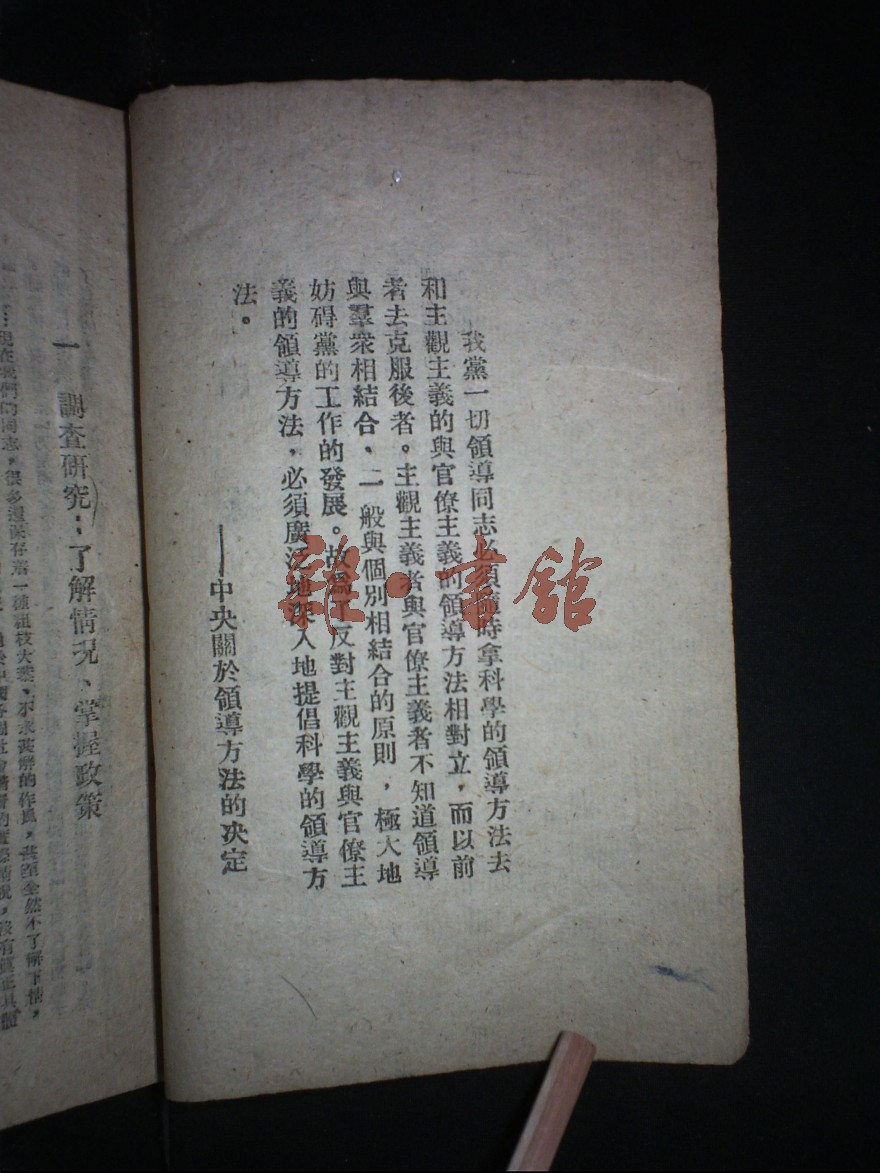 我黨一切領導同志必須隨時拿科學的領導方法去
和主觀主義的與官僚主義的領導方法相對立，而以前
者去克服後者。主觀主義者與官僚主義者不知道領導
與羣衆相結合、一般與個別相結合的原則，極大地
妨碍黨的工作的發展。故爲了反對主觀主義與官僚主
義的領導方法，必須廣泛地深入地提倡科學的領導方
法。
——中央關於領導方法的决定
一 調查研究：了解情况、掌握政策
現在我們的同志，很多還保存着一種粗枝大葉、不求甚解的作風，甚至全然不了解下情，
雜·書館